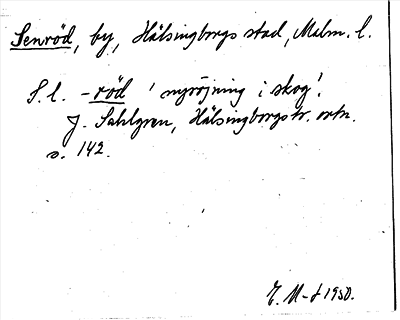 Senröd, by, Hälsingborgs stad, Malm. l.
S. l. -röd 'nyröjning i skog'.
J. Sahlgren, Hälsingborgstr. ortn.
s. 142.
1950.